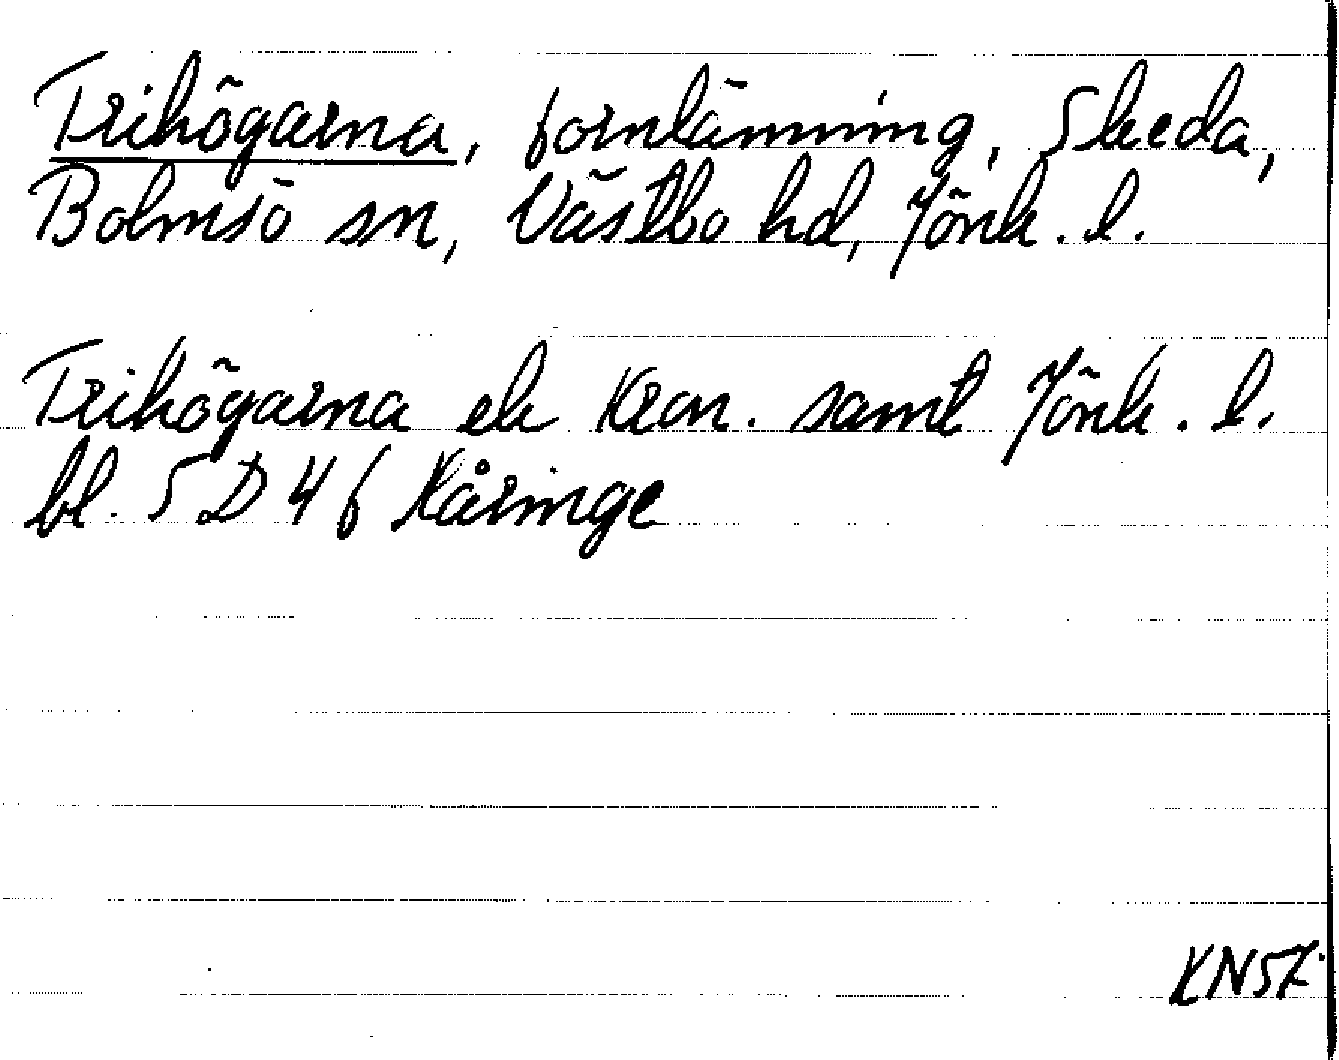 Trihögarna, fornlämning, Skeda,
Bolmsö sn, Västbo hd, Jönk. l.
Trihögarna ek Kron. samt Jönk. l.
bl. 5 D 4 f Kåringe